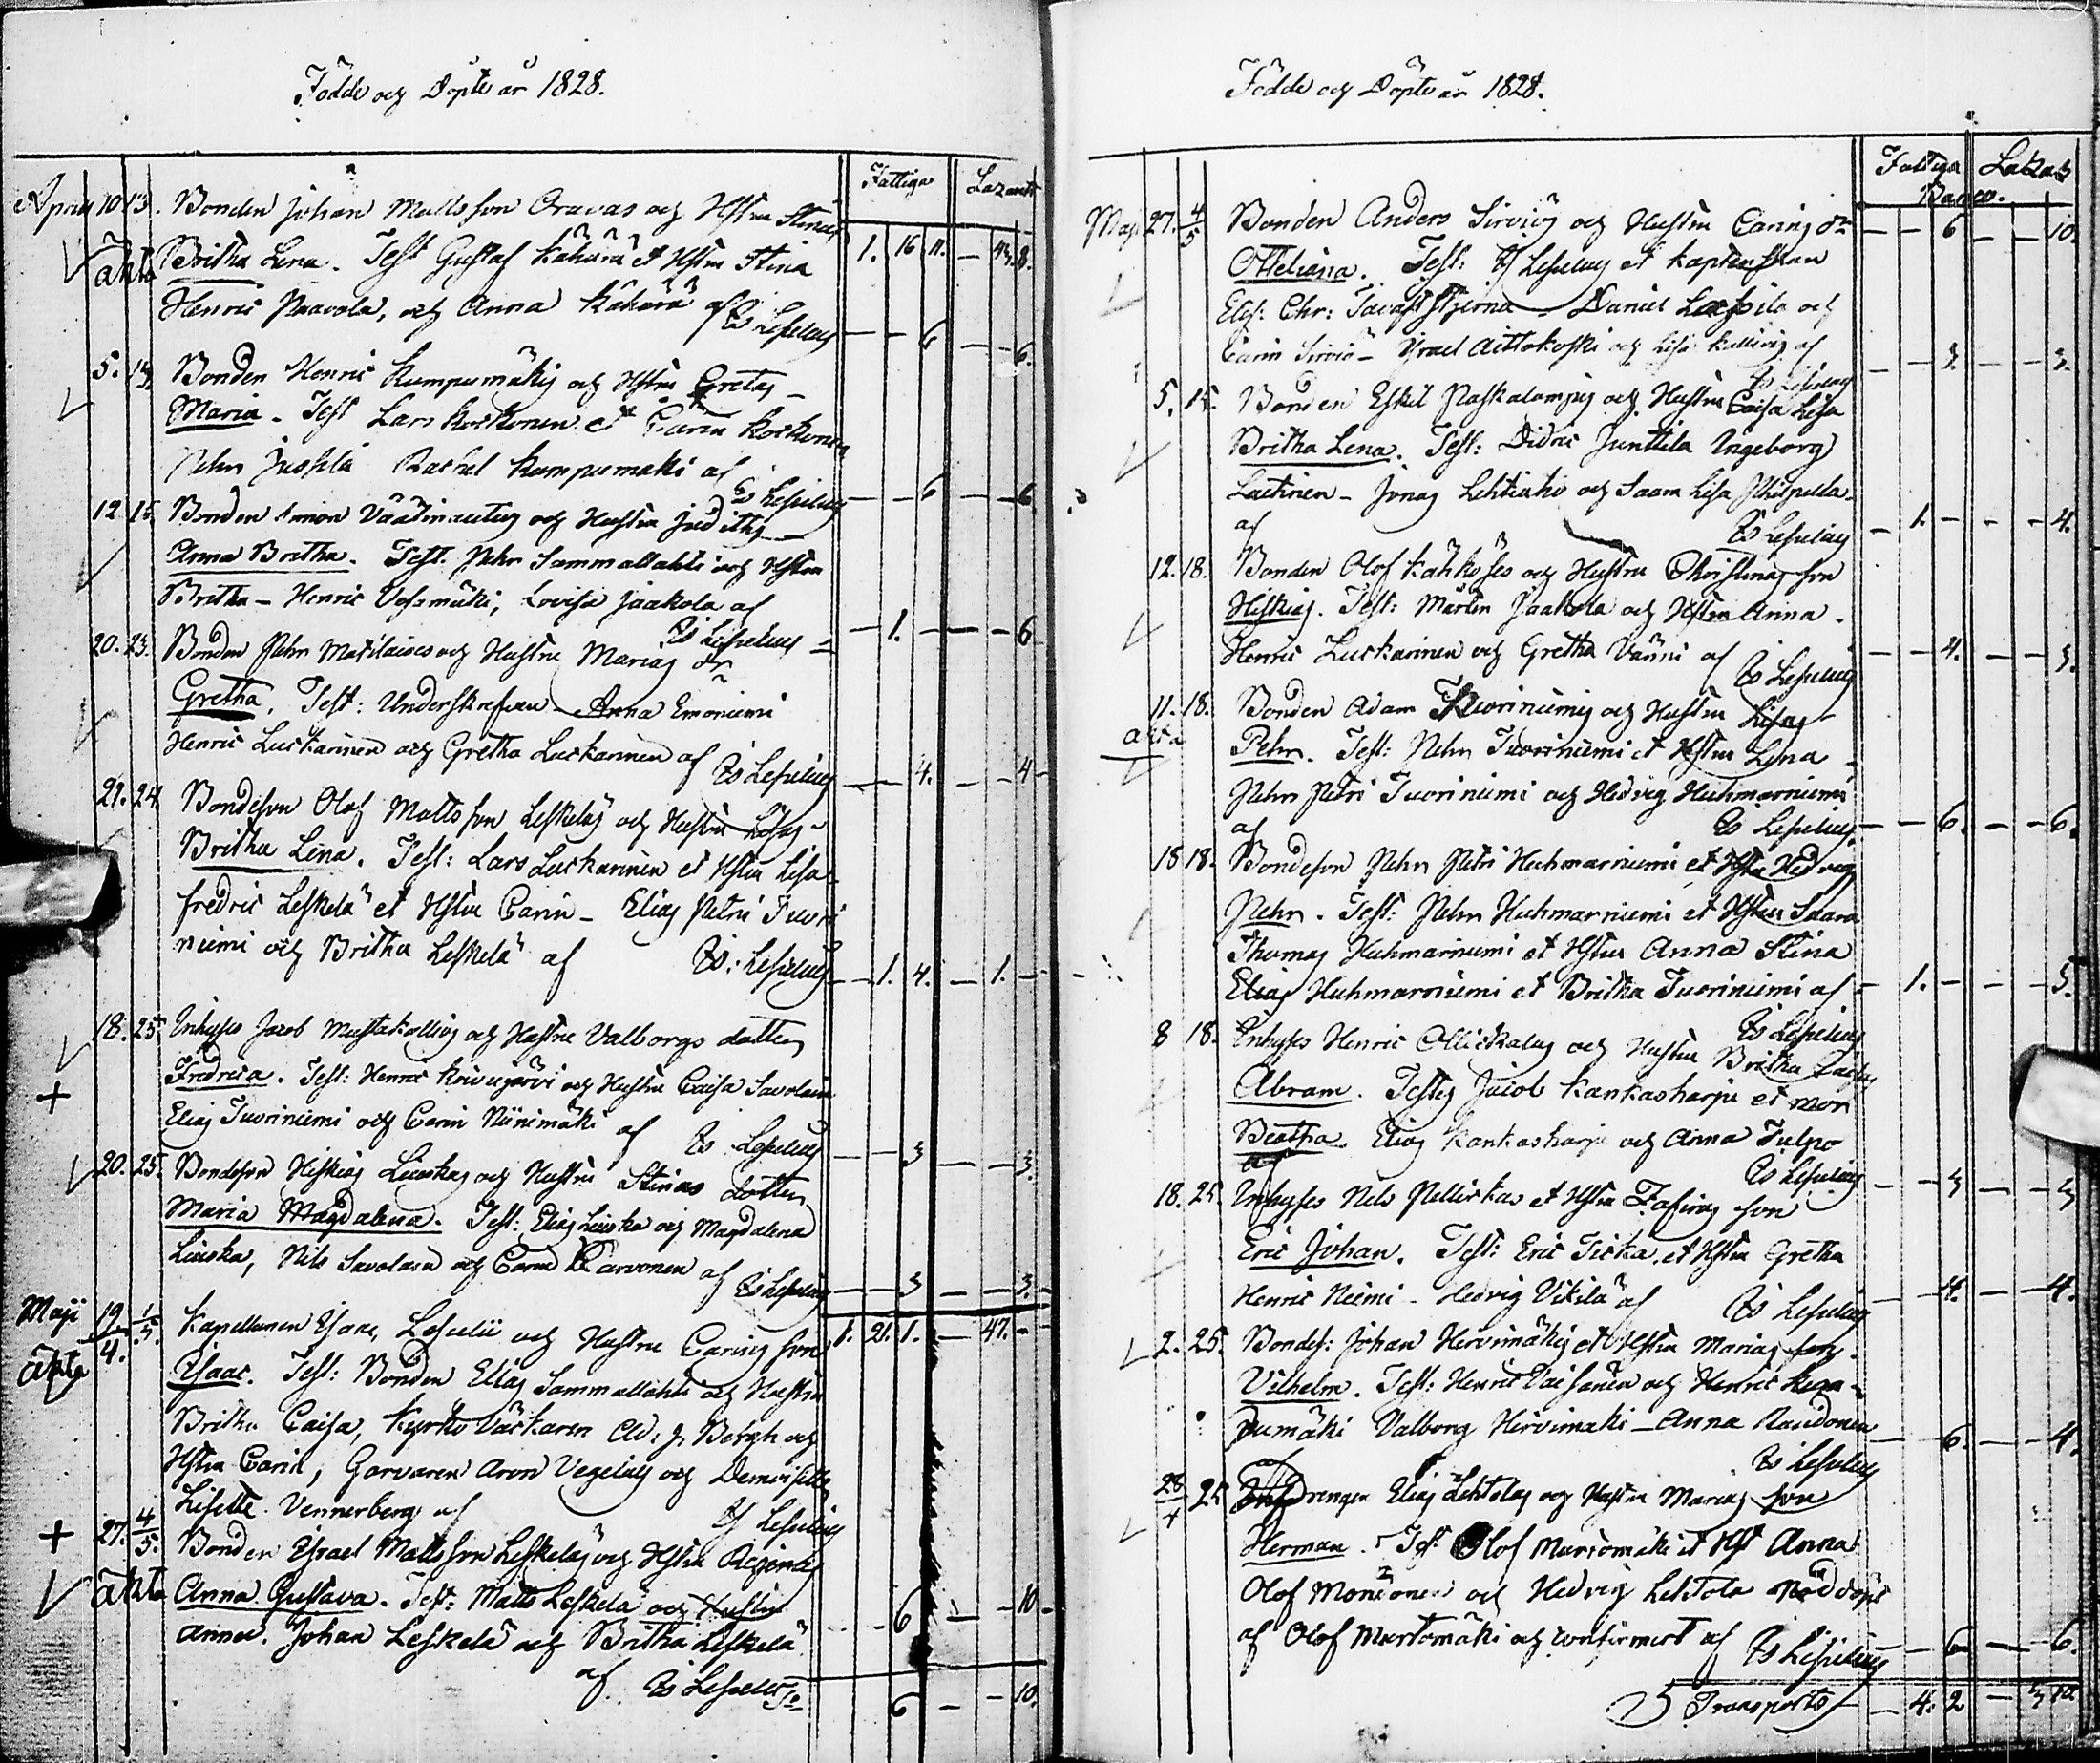 Födde och Döpte år 1828.
Fattiga Lazarets
April 10 13. Bonden Johan Mattsson Oravas och Hstru Stinas
äkta Britha Lena. Test Gustaf Kähärä et Hstru Stina 1. 16 11. - 43. 8.
Henric Paavola, och Anna Kähärä af
Is Leseleus - - 6 - - 6.
5. 13. Bonden Henric Kumpumäkis och Hstru Gretas -
Maria - Test Lars Korhonen et Carin Korhonen
Pehr Jussila Rachel Kumpumäki af
Is Leseleus - - 6 - - 6
12. 15. Bonden Simon Väätinautus och Hustru Judiths -
Anna Britha. Test. Pehr Sammallahti och Hstru
Britha - Henric Vesamäki, Lovisa Jaakola af
Is Leseleus - 1. - - - 6
20. 23. Bonden Pehr Matilaises och Hustru Marias dr
Gretha. Test: Underskrefven - Anna Emoniemi
Henric Luckarinen och Gretha Luckarinen af Is Leseleus - - 4. - - 4 -
21. 24 Bondeson Olof Mattsson Leskeläs och Hustru Lisas -
Britha Lena. Test: Lars Luckarinen et Hstru Lisa -
Fredric Leskelä et Hstru Carin - Elias Petri Tuori
niemi och Britha Leskelä af Is: Leseleus - 1. 4. - 1. -
18. 25. Inhyses Jacob Mustakallios och Hustru Valborgs dotter
Fredrica. Test: Henric Koivujärvi och Hustru Caisa Savolain
Elias Tuoriniemi och Carin Niinimäki af Is Leseleus - - 3 - - 3.
20. 25. Bondeson Hiskias Liuskas och Hustru Stinas dotter
Maria Magdalena. Test: Elias Liuska och Magdalena
Liuska, Nils Savolain och Carin Parvonen af Is Leseleus - - 3 - - 3.
Maji 19/4. 1/5. Kapellanen Isaac Leselii och Hustru Carins son 1. 21. 1. - 47. -
äkta Isaac. Test: Bonden Elias Sammallahti och Hustru
Britha Caisa, Kyrko Väckaren Ad: J: Bergh och
Hstru Carin, Garvaren Aron Vegelius och Demoiselle
Lisette Vennerberg af Is Leseleus
27. 4/5. Bonden Israel Mattsson Leskeläs och Hstru Reginas
äkta Anna Gustava. Test: Matts Leskelä och Hustru - 6 - - 10 -
Anna. Johan Leskelä och Britha Leskelä
af Is Leseleus
6 - - 10.
Födde och Döpte år 1828.
Fattiga Lazarets
Maji 27. 4/5 Bonden Anders Sirviös och Hustru Carins dr - - 6 - - 10.
Otteliana. Test: Is Leseleus et Kaptenskan
Elis: Chr: Tavaststjerna - Daniel Lassila och
Carin Sirviö - Israel Aittokoski och Lisa Kallio af
Is Leseleus - 3. - - 3.
5. 15. Bonden Eskil Paskalampis och Hustru Caisa Lisa
Britha Lena. Test: Didric Junttila Ingeborg
Laitinen - Jonas Lehtiaho och Saara Lisa
af Is Leseleus - 1. - - - 4.
12. 18. Bonden Olof Kähköses och Hustru Christinas son
Hiskias. Test: Mårten Jaakola och Hstru Anna.
Henric Luckarinen och Gretha Vänni af Is Leseleus - - 4. - - 3.
11. 18. Bonden Adam Tuoriniemis och Hustru Lisas
äkta Pehr. Test: Pehr Tuoriniemi et Hstru Lena -
Pehr Petri Tuoriniemi och Hedvig Huhmarniemi
af Is Leseleus - - 6. - - 6.
15 18. Bondeson Pehr Petri Huhmarniemi et Hstru Hedvigs
Pehr. Test: Pehr Huhmarniemi et Hstru Saara
Thomas Huhmarniemi et Hstru Anna Stina
Elias Huhmarniemi et Britha Tuoriniemi af - 1. - - - 5.
Is Leseleus
8 18. Inhyses Henric Ollickalas och Hustru Britha Caisas
Abram. Testes Jacob Kankaharju et mor
Beatha. Elias Kankaharju och Anna Tulpo
af Is Leseleus - - 3 - - 3
18. 25. Inhyses Nils Pellickas et Hstru son
Eric Johan. Test: Eric Ticka et Hstru Gretha
Henric Niemi - Hedvig Vikilä af Is Leseleus - - 4. - - 4.
2. 25. Bondes: Johan Hirvimäkis et Hstru Marias son.
Vilhelm. Test: Henric Väisänen och Henric Kum-
pumäki Valborg Hirvimäki - Anna Raudonen
af Is Leseleus - - 6. - - 4.
28/4 25 Drengen Elias Lehtolas och Hustru Marias son
Herman. Test. Olof Murtomäki et Hst Anna
Olof Moncones och Hedvig Lehtola Nöddöpt
af Olof Murtomäki och confirmert af Is Leseleus - - 6 - - 6.
Transports - 4. 2 - 3 10.